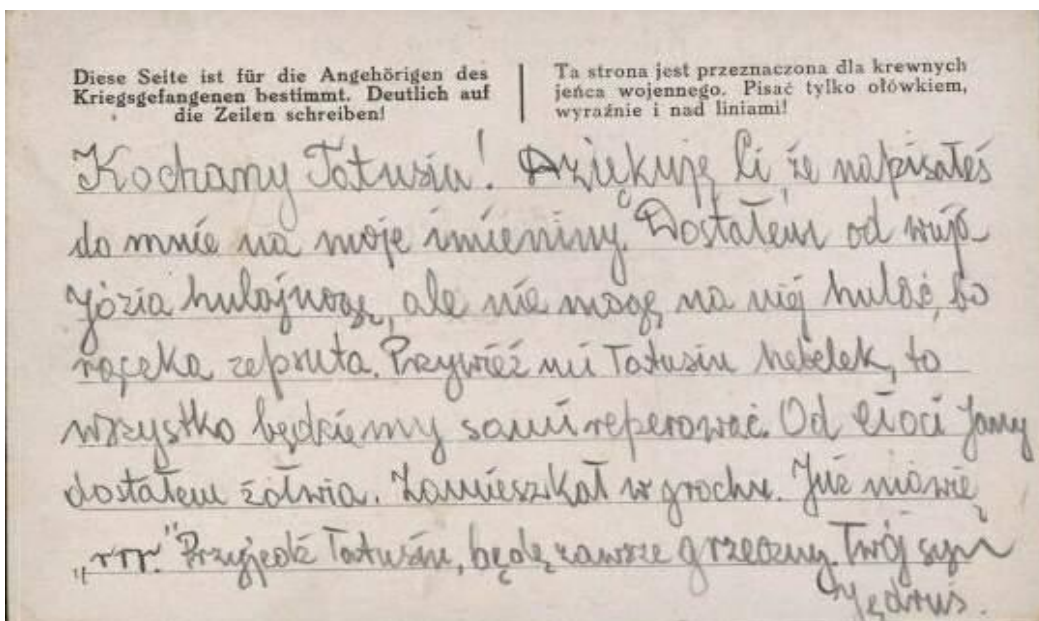 Diese Seite ist für die Angehörigen des
Kriegsgefangenen bestimmt. Deutlich auf
die Zeilen schreiben!
Ta strona jest przeznaczona dla krewnych
jeńca wojennego. Pisać tylko ołówkiem,
wyraźnie i nad liniami!
Kochany Tatusiu! Dziękuję Ci że napisałeś
do mnie na moje imieniny. Dostałem od wuja
Józia hulajnogę, ale nie mogę na niej hulać, bo
rączka zepsuta. Przywieź mi Tatusiu hebelek, to
wszystko będziemy sami reperować. Od cioci Jany
dostałem żółwia. Zamieszkał w grochu. Już mówię
„rrr." Przyjedź Tatusiu, będę zawsze grzeczny. Twój syn
Jędruś.